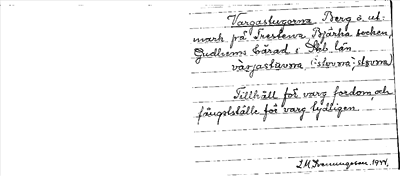 Vargastugorna Berg o. ut-
mark på Trestena Bjärka socken,
Gudhems härad i Skb. län
vàrjastùvma (-stòvna; stovna)
Tillhåll för varg fordom, och
fångstställe för varg tydligen.
1944.